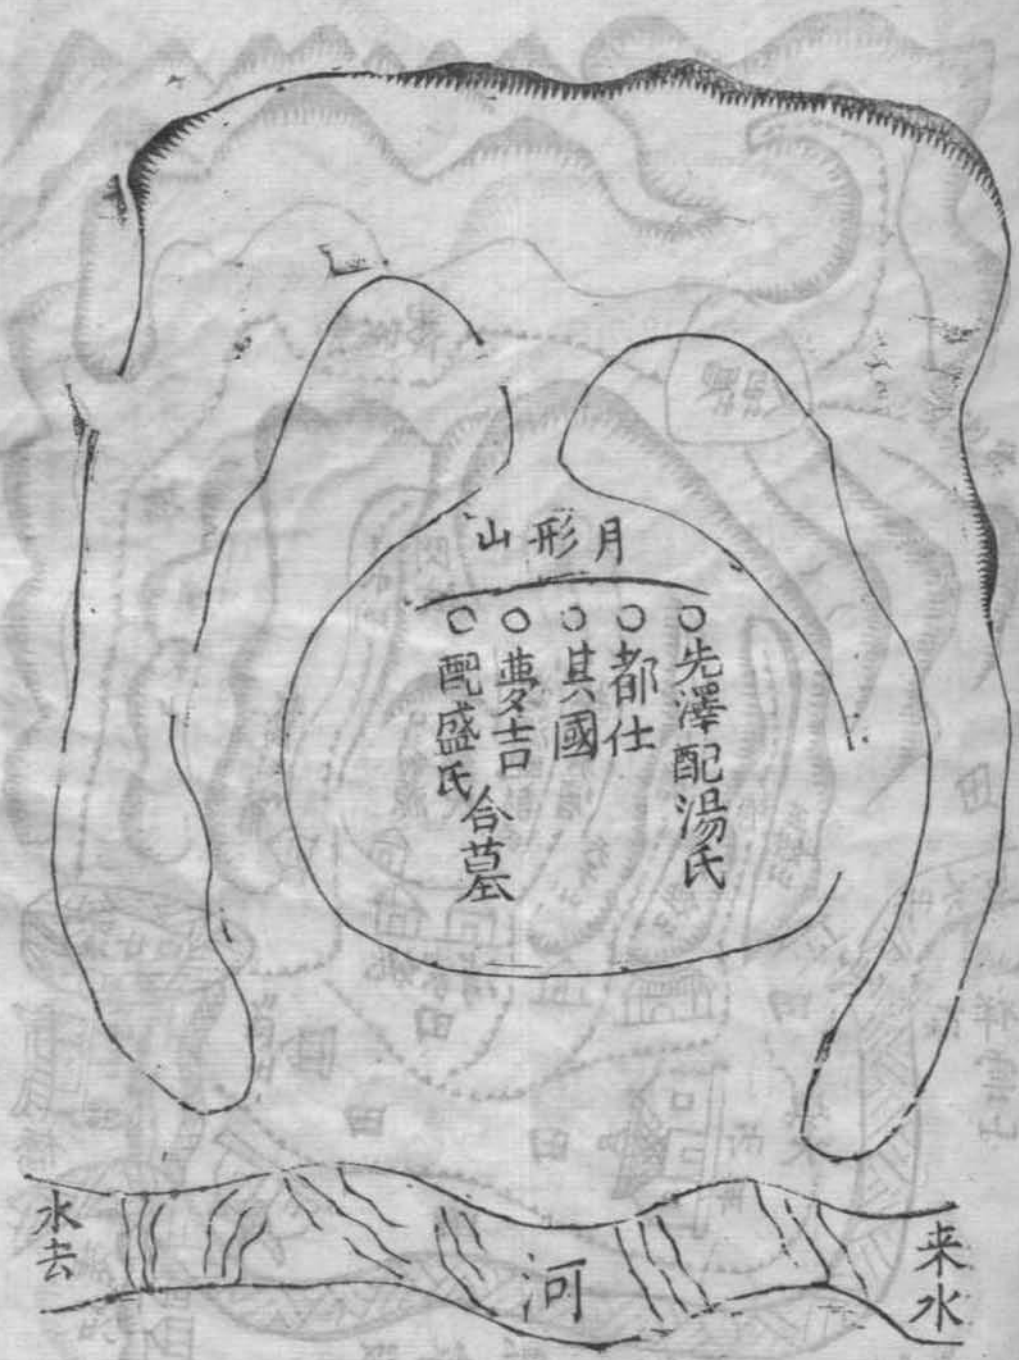 月形山
○先澤配湯氏
○都仕
○其國
○夢吉
○配盛氏
合墓
来水
河
水去